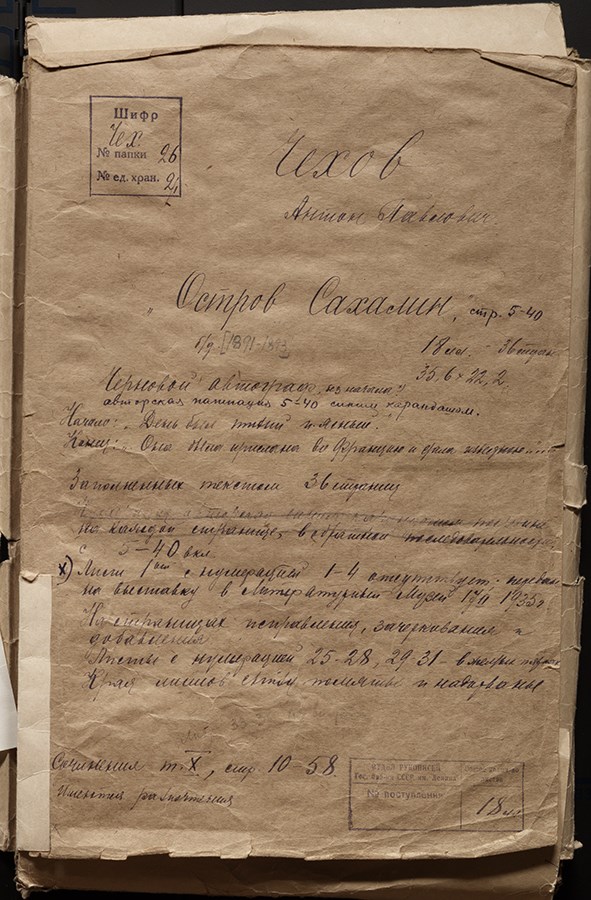 Шифр
Чех.
№ папки 26
№ ед. хран. 2
Чехов
Антон Павлович
"Остров Сахалин", стр. 5-40
б/д [1891-1893]
18 лл. - 36 стран.
35,6 × 22,2
Черновой автограф, без начала
авторская пагинация 5-40 синим карандашом.
Начало: "День был тихий и ясный..
Конец: "Она была прислана во Францию и дала
Заполненных текстом 36 страниц
на каждой странице, в обратной последовательности
с 5-40 вкл.
х) Лист 1ый с нумерацией 1-4 отсутствует.
на выставку в Литературный Музей 1935г
На страницах исправления, зачеркивания и
добавления
Листы с нумерацией 25-28, 29-31 -
Края листов помяты и надорваны
Сочинения т. X, стр. 10-58
Имеются разночтения
ОТДЕЛ РУКОПИСЕЙ
№ поступления
18 лл.